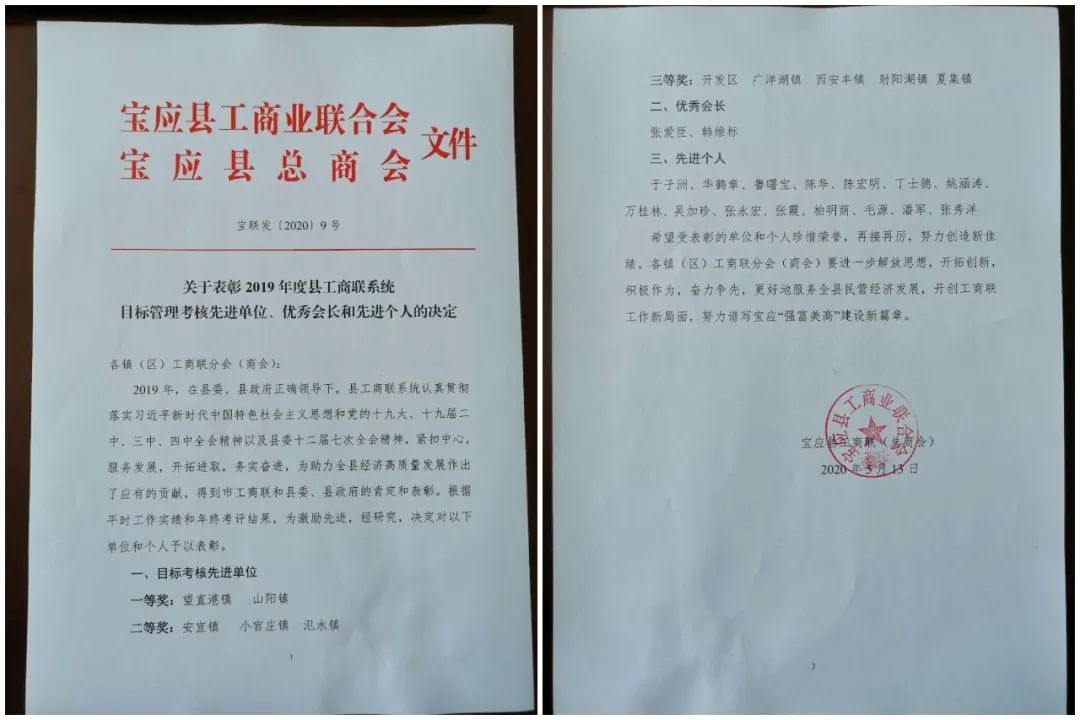 宝应县工商业联合会
宝应县总商会
文件
宝联发〔2020〕9号
关于表彰2019年度县工商联系统
目标管理考核先进单位、优秀会长和先进个人的决定
各镇（区）工商联分会（商会）：
2019年，在县委、县政府正确领导下，县工商联系统认真贯彻
落实习近平新时代中国特色社会主义思想和党的十九大、十九届二
中、三中、四中全会精神以及县委十二届七次全会精神，紧扣中心，
服务发展，开拓进取，务实奋进，为助力全县经济高质量发展作出
了应有的贡献，得到市工商联和县委、县政府的肯定和表彰。根据
平时工作实绩和年终考评结果，为激励先进，经研究，决定对以下
单位和个人予以表彰。
一、目标考核先进单位
一等奖：望直港镇 山阳镇
二等奖：安宜镇 小官庄镇 氾水镇
1
三等奖：开发区 广洋湖镇 西安丰镇 射阳湖镇 夏集镇
二、优秀会长
张爱臣、韩维标
三、先进个人
于子洲、华鹤章、鲁曙宝、陈华、陈宏明、丁士德、姚涵涛、
万桂林、吴加珍、张永宏、张霞、柏明荫、毛源、潘军、张秀洋
希望受表彰的单位和个人珍惜荣誉，再接再厉，努力创造新佳
绩。各镇（区）工商联分会（商会）要进一步解放思想，开拓创新，
积极作为，奋力争先，更好地服务全县民营经济发展，开创工商联
工作新局面，努力谱写宝应“强富美高”建设新篇章。
宝应县工商业联合会
宝应县工商联（总商会）
2020年5月13日
2